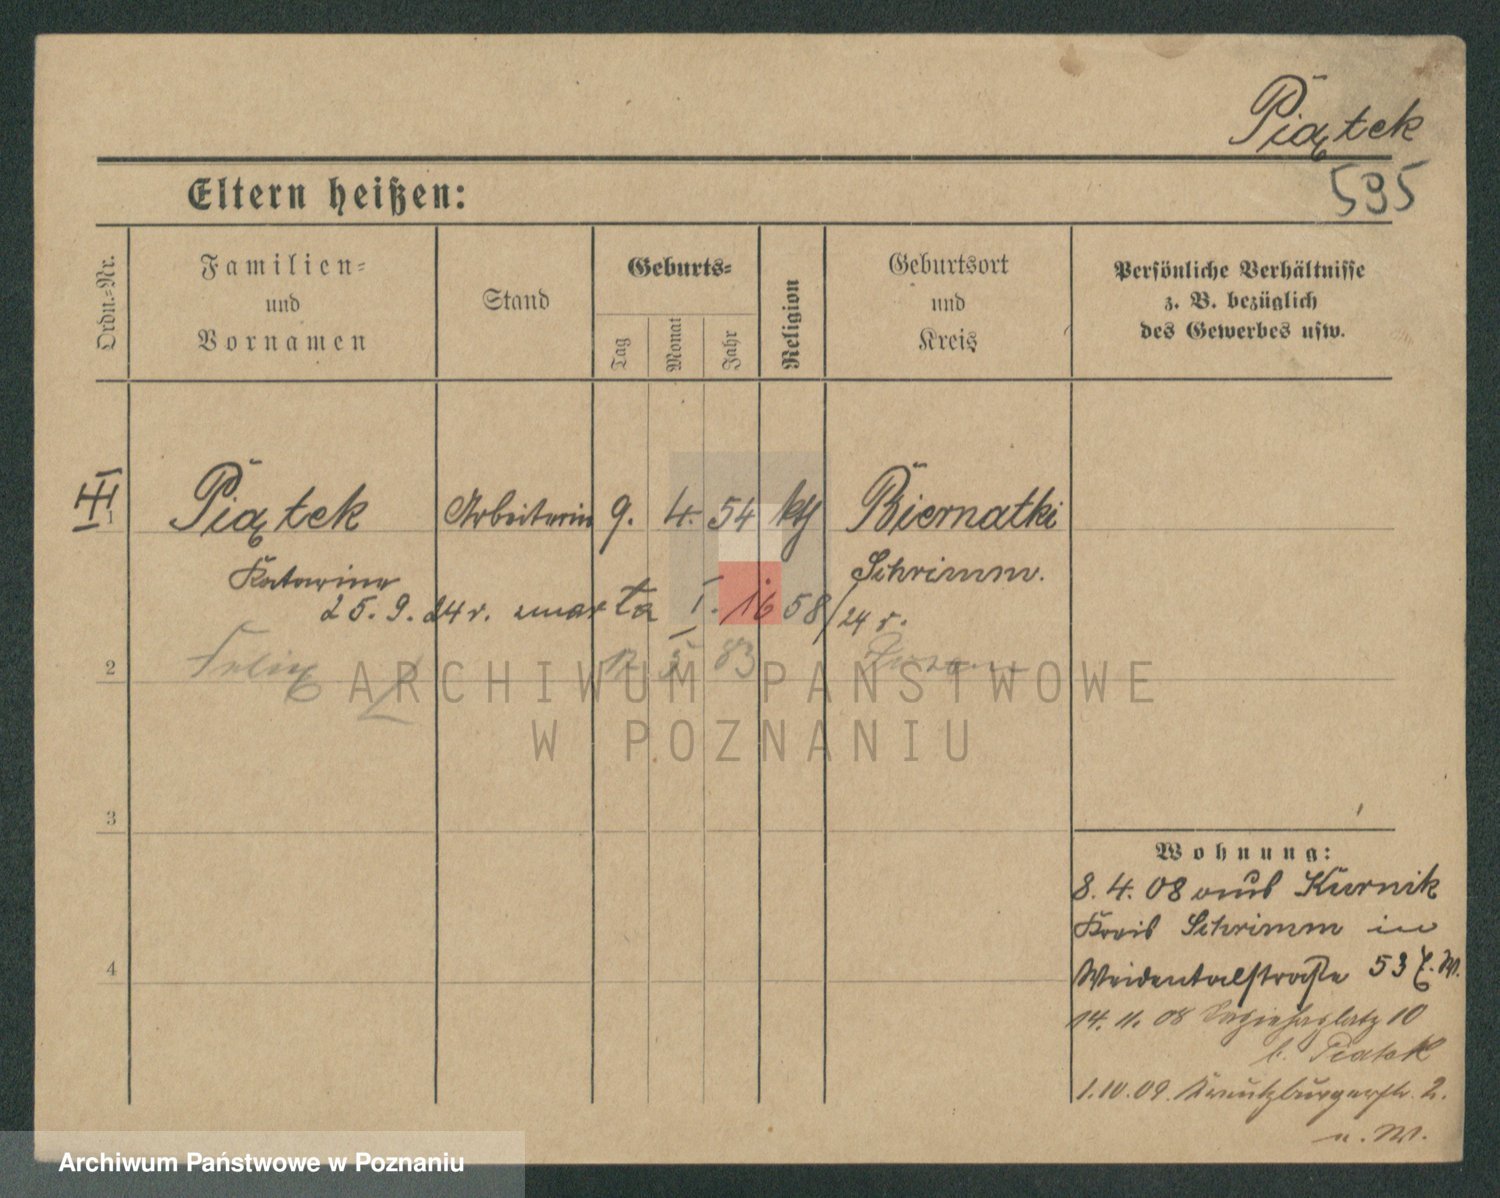 Piątek
595
Eltern heißen:
Ordn.=Nr.
Familien=
und
Vornamen
Stand
Geburts=
Tag
Monat
Jahr
Religion
Geburtsort
und
Kreis
Persönliche Verhältnisse
z. B. bezüglich
des Gewerbes usw.
III
1 Piątek Arbeiterin 9. 4. 54 kth Biernatki
Katarina Schrimm.
25.9.24 r. umarła I. 1658/24 r.
2 Felix 5 83
3
4
ARCHIWUM PAŃSTWOWE
W POZNANIU
Wohnung:
8.4.08 aus Kurnik
Kreis Schrimm in
Weidentalstraße 53 b. M.
14. 11. 08 10
b. Piątek
1.10.09. Kreutzburgerstr. 2.
Archiwum Państwowe w Poznaniu